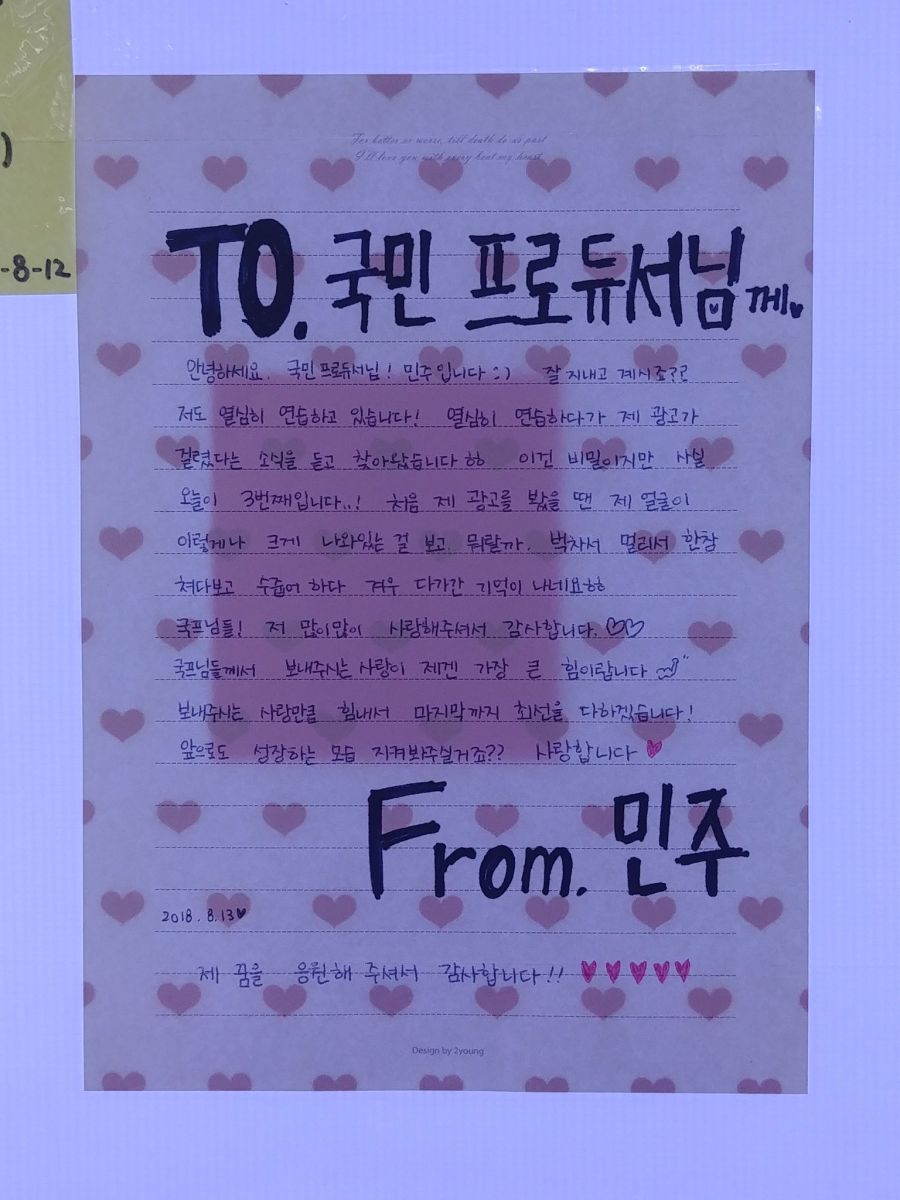 )
-8-12
For better or worse, till death do us part
I'll love you with every beat my heart
TO. 국민 프로듀서님께♥
안녕하세요. 국민프로듀서님! 민주입니다 :) 잘 지내고 계시죠??
저도 열심히 연습하고 있습니다! 열심히 연습하다가 제 광고가
걸렸다는 소식을 듣고 찾아왔습니다ㅎㅎ 이건 비밀이지만 사실
오늘이 3번째입니다..! 처음 제 광고를 봤을 땐 제 얼굴이
이렇게나 크게 나와있는 걸 보고, 뭐랄까. 벅차서 멀리서 한참
쳐다보고 수줍어 하다 겨우 다가간 기억이 나네요ㅎㅎ
국프님들! 저 많이많이 사랑해주셔서 감사합니다.♡♡
국프님들께서 보내주시는 사랑이 제겐 가장 큰 힘이랍니다
보내주시는 사랑만큼 힘내서 마지막까지 최선을 다하겠습니다!
앞으로도 성장하는 모습 지켜봐주실거죠?? 사랑합니다♥
From. 민주
2018. 8.13♥
제 꿈을 응원해 주셔서 감사합니다!! ♥♥♥♥♥
Design by 2young